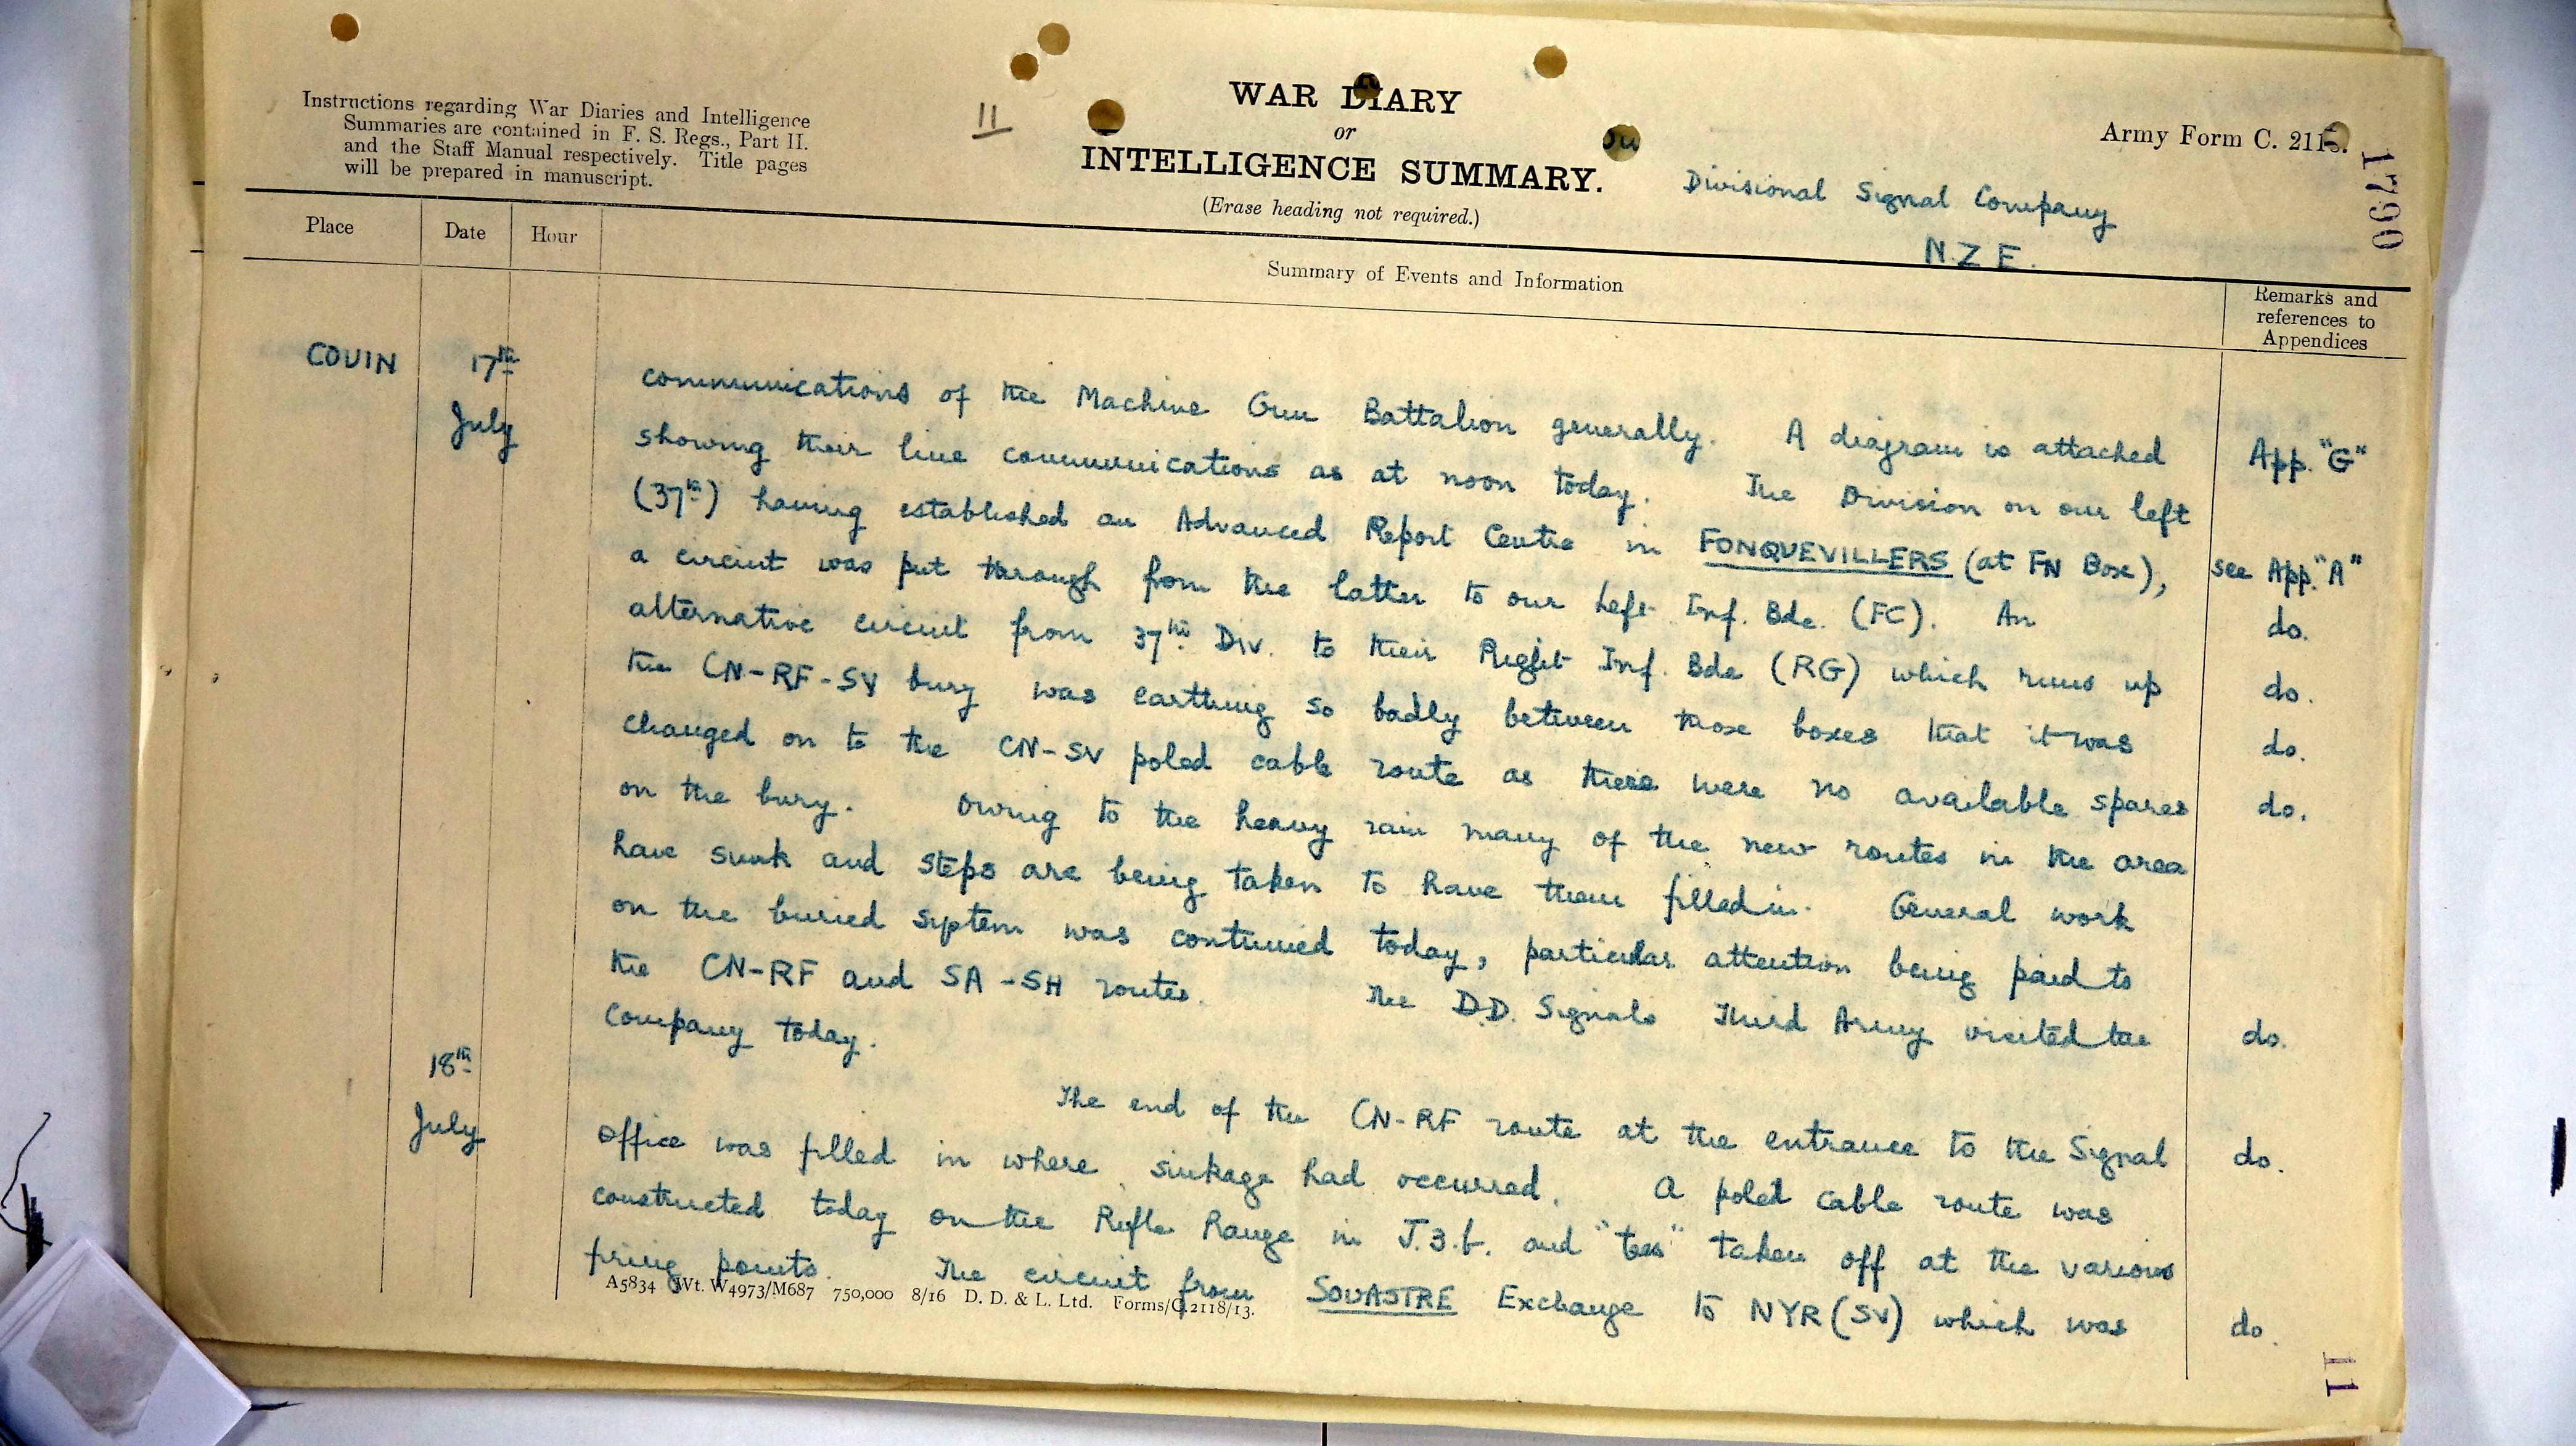 Instructions regarding War Diaries and Intelligence
Summaries are contained in F. S. Regs., Part II.
and the Staff Manual respectively. Title pages
will be prepared in manuscript.
11
WAR DIARY
or
INTELLIGENCE SUMMARY.
(Erase heading not required.)
Army Form C. 2118.
1790
Divisional Signal Company
N.Z.E.
Place
Date
Hour
Summary of Events and Information
Remarks and
references to
Appendices
COUIN
17th
July
communications of the Machine Gun Battalion generally. A diagram is attached
App. "G"
showing their line communications as at noon today. The Division on our left
(37th) having established an Advanced Report Centre in FONQUEVILLERS (at FN Box),
see App. "A"
a circuit was put through from the latter to our Left Inf. Bde. (FC). An
do.
alternative circuit from 37th Div. to their Right Inf. Bde (RG) which runs up
do.
the CN-RF-SV bury was earthing so badly between those boxes that it was
do.
changed on to the CN-SV poled cable route as there were no available spares
do.
on the bury. Owing to the heavy rain many of the new routes in the area
have sunk and steps are being taken to have them filled in. General work
on the buried system was continued today, particular attention being paid to
the CN-RF and SA-SH routes. The D.D. Signals Third Army visited the
do.
Company today.
18th
July
The end of the CN-RF route at the entrance to the Signal
do.
office was filled in where sinkage had occurred. A poled cable route was
constructed today on the Rifle Range in J.3.b. and "tees" taken off at the various
firing points. The circuit from SOUASTRE Exchange to NYR (SV) which was
do.
A5834 Wt. W4973/M687 750,000 8/16 D. D. & L. Ltd. Forms/C.2118/13.
11